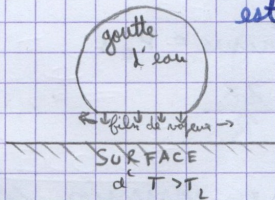 est
goutte
d'eau
film de vapeur
SURFACE
à T > T_L